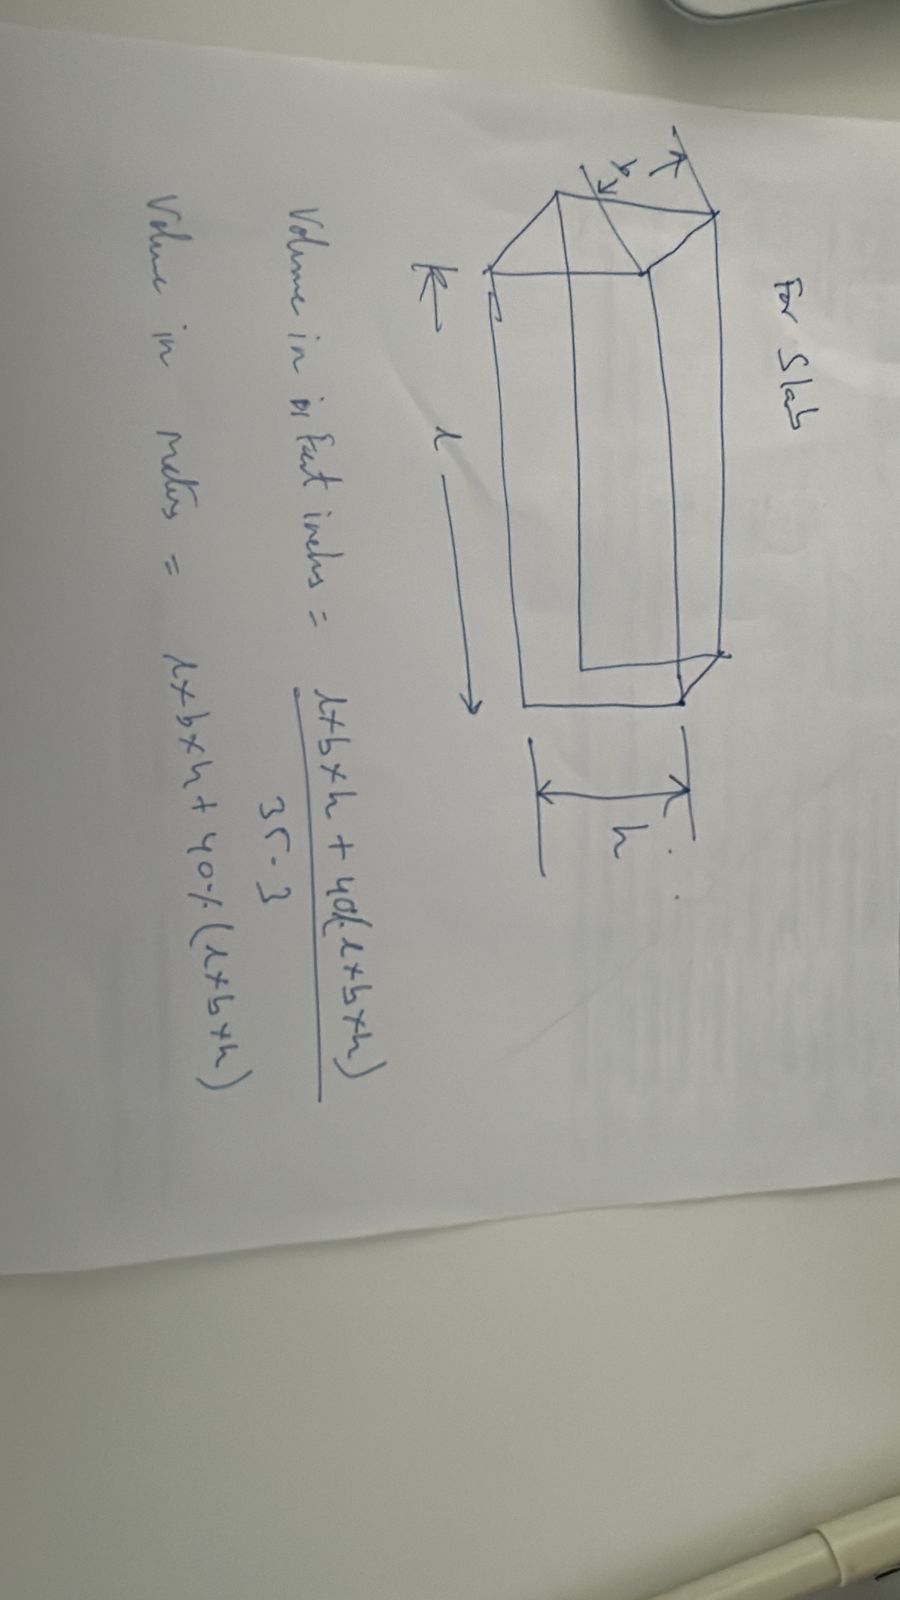 For Slab
b
h
l
Volume in Feet inches = l×b×h + 40%(l×b×h)
35.3
Volume in meters = l×b×h + 40%(l×b×h)